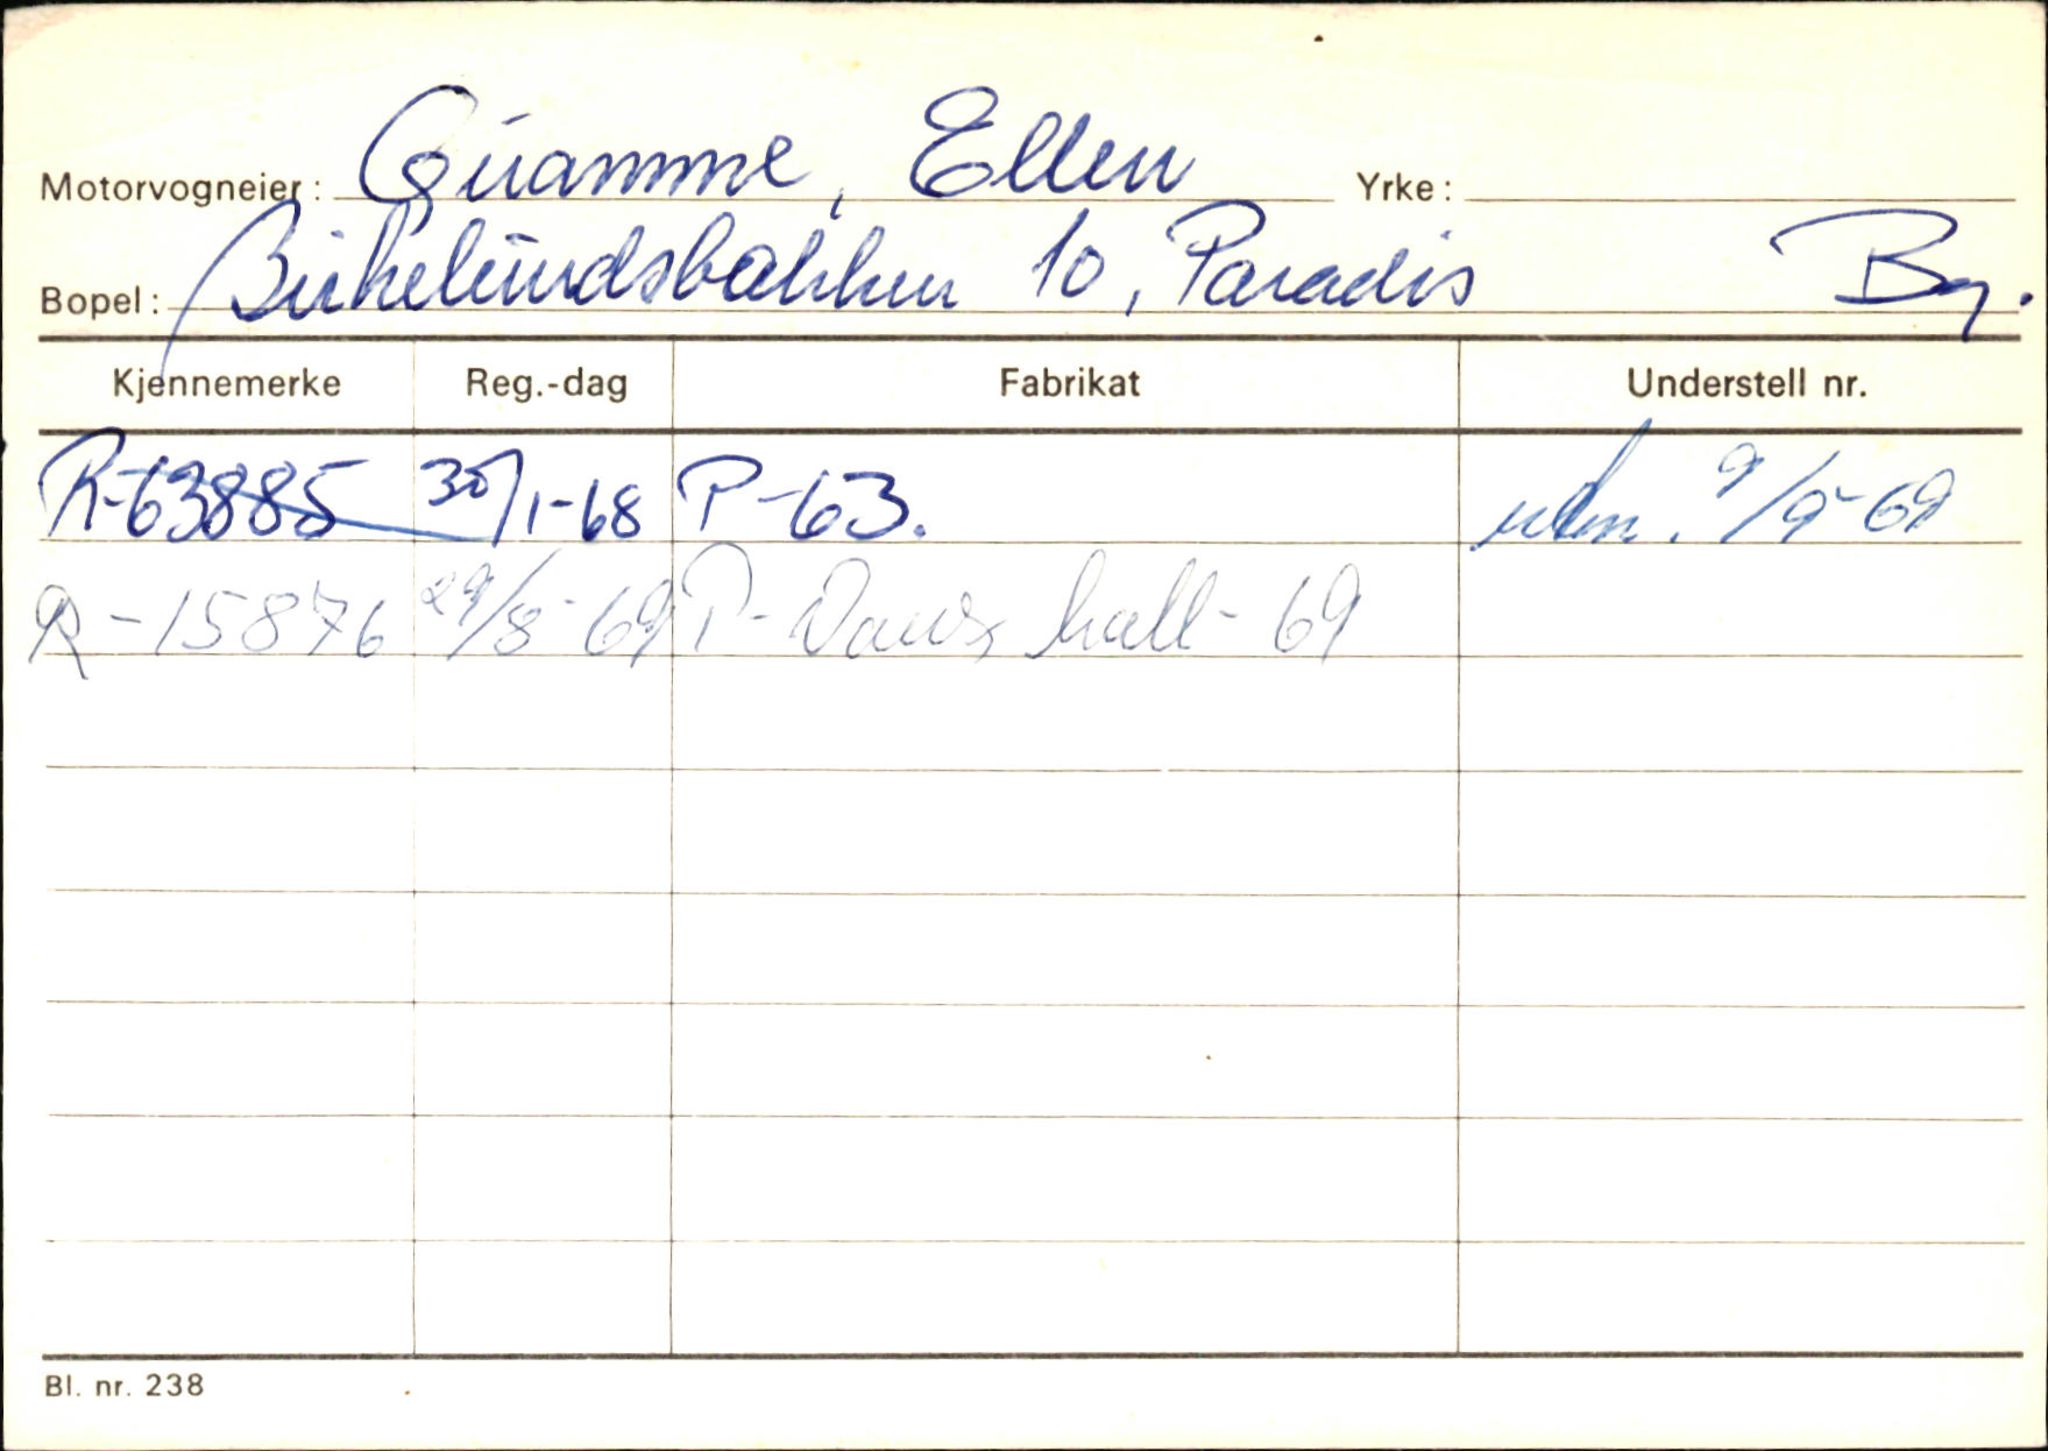 Motorvogneier: Quamme, Ellen Yrke:
Bopel: Birkelundsbakken 10, Paradis Bg.
Kjennemerke Reg.-dag Fabrikat Understell nr.
R-63885 30/1-68 P-63. utm. 9/9-69
R-15876 29/8-69 P-Vauxhall-69
Bl. nr. 238